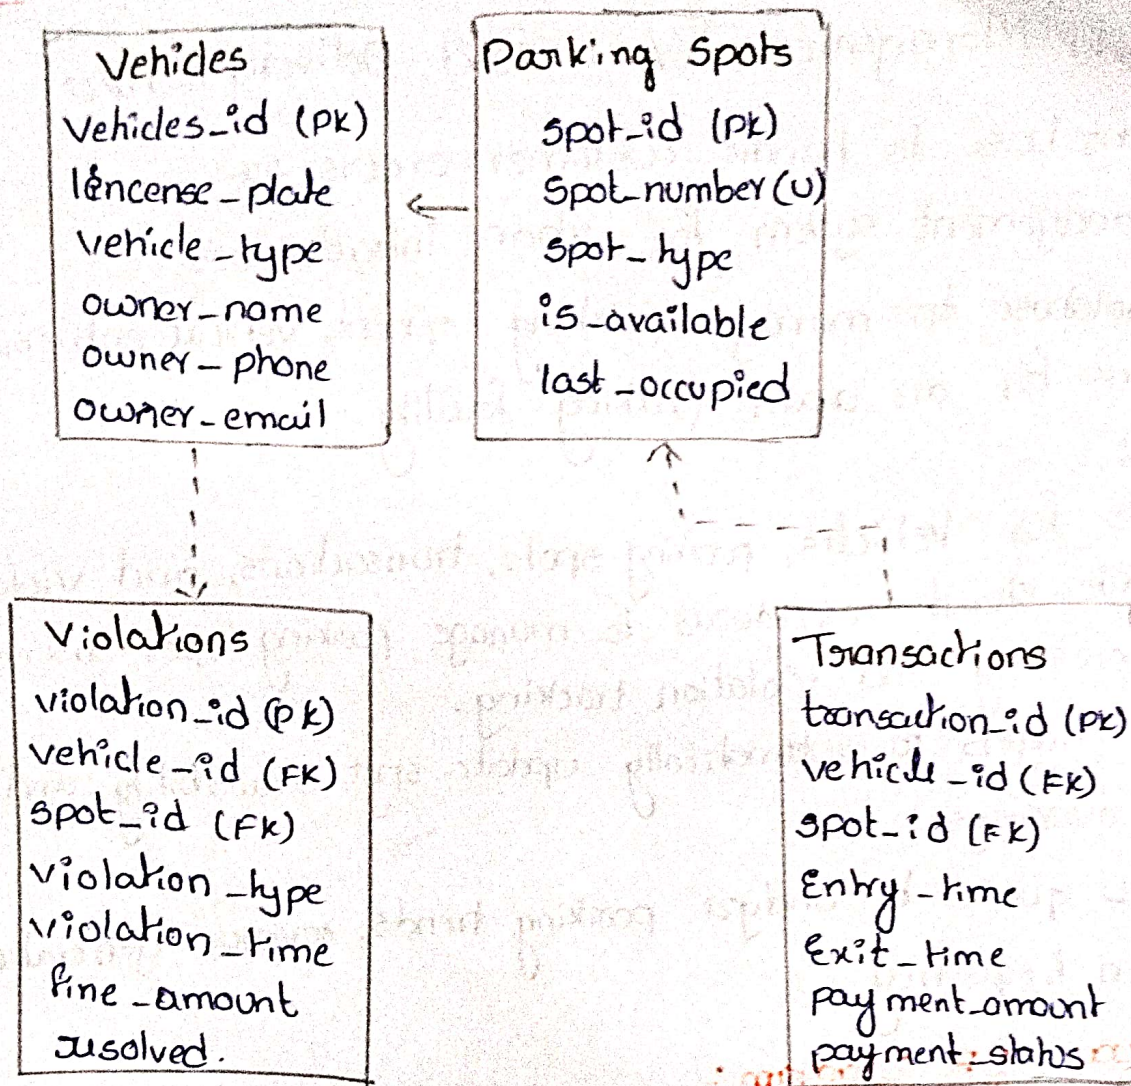 Vehicles
vehicles_id (PK)
lencense_plate
vehicle_type
owner_name
owner_phone
owner_email
Parking Spots
spot_id (PK)
Spot_number(U)
spot_type
is_available
last_occupied
Violations
violation_id (PK)
vehicle_id (FK)
spot_id (FK)
violation_type
violation_time
fine_amount
resolved.
Transactions
transaction_id (PK)
vehicle_id (FK)
spot_id (FK)
Entry_time
Exit_time
payment_amount
payment_status